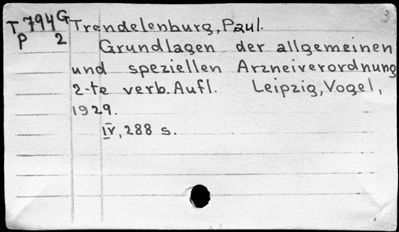 T 794 G Trendelenburg, Paul.
P 2 Grundlagen der allgemeinen
und speziellen Arzneiverordnung
2-te verb. Aufl. Leipzig, Vogel,
1929.
IV, 288 s.
3